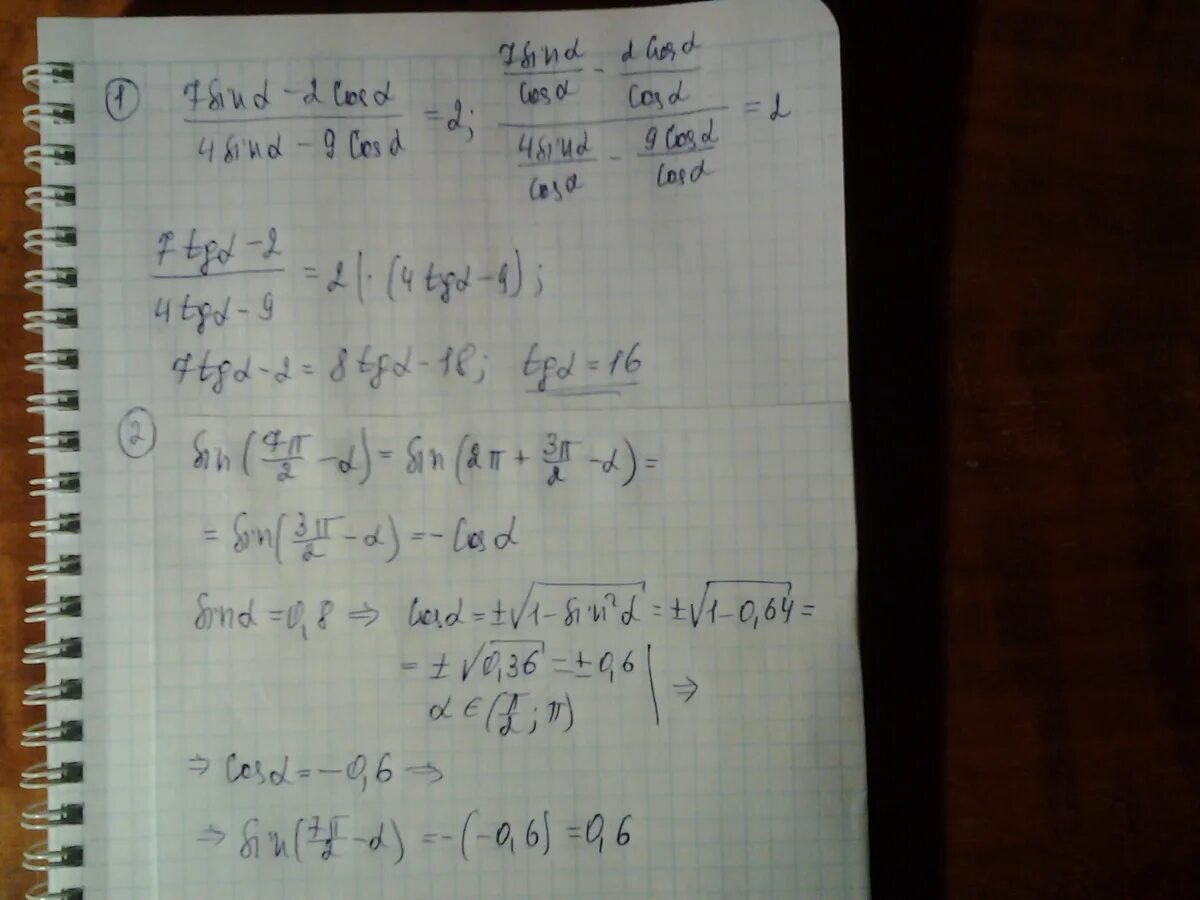 ① (7sinα - 2cosα)/(4sinα - 9cosα) = 2; (7sinα/cosα - 2cosα/cosα)/(4sinα/cosα - 9cosα/cosα) = 2
(7tgα - 2)/(4tgα - 9) = 2 | · (4tgα - 9);
7tgα - 2 = 8tgα - 18; tgα = 16
② sin(7π/2 - α) = sin(2π + 3π/2 - α) =
= sin(3π/2 - α) = -cosα
sinα = 0,8 ⇒ cosα = ±√(1 - sin²α) = ±√(1 - 0,64) =
= ±√0,36 = ±0,6
α ∈ (π/2; π) | ⇒
⇒ cosα = -0,6 ⇒
⇒ sin(7π/2 - α) = -(-0,6) = 0,6